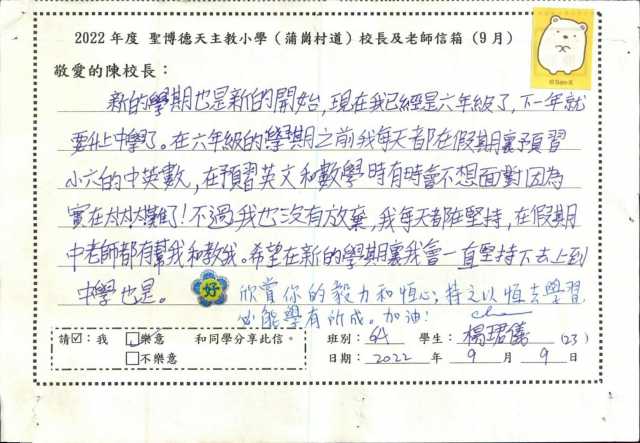 2022 年度 聖博德天主教小學（蒲崗村道）校長及老師信箱（9 月）
敬愛的陳校長：
新的學期也是新的開始，現在我已經是六年級了，下一年就
要升上中學了。在六年級的學期之前我每天都在假期裏預習
小六的中英數，在預習英文和數學時有時會不想面對因為
實在太太太難了！不過我也沒有放棄，我每天都在堅持，在假期
中老師都有幫我和教我。希望在新的學期裏我會一直堅持下去上到
中學也是。
好
欣賞你的毅力和恒心；持之以恒去學習
必能學有所成。加油！
請☑：我 □樂意 和同學分享此信。
□不樂意
班別：6A 學生：楊珺儀 (23)
日期：2022 年 9 月 9 日